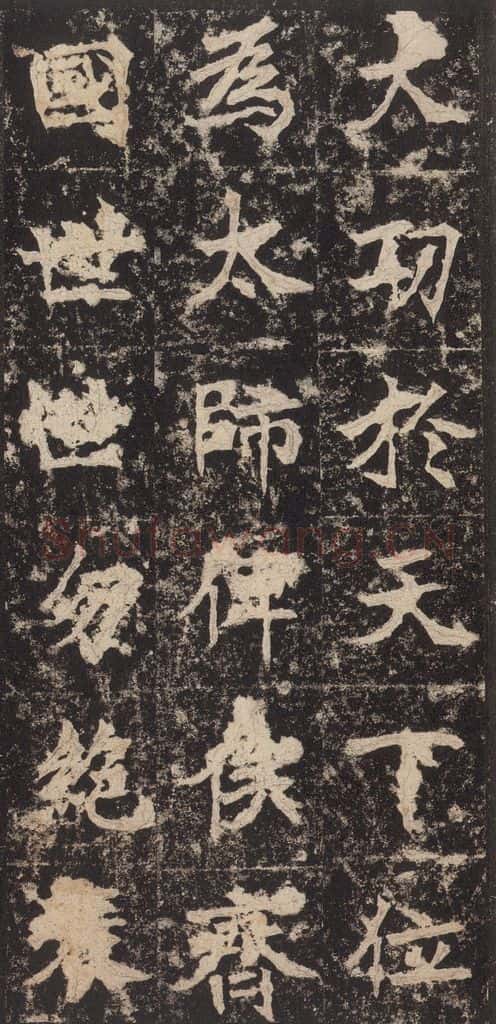 大功於天下位
為太師俾侯齊
國世世勿絕
Shufawang.CN